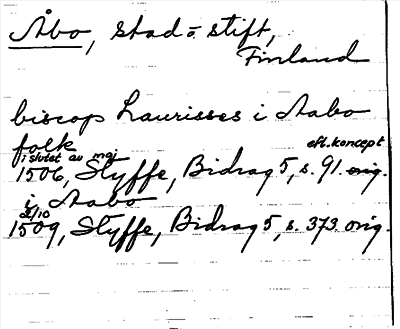 Åbo, stad o. stift,
Finland
biscop Laurisses i Aabo
folk
i slutet av maj eft. koncept
1506, Styffe, Bidrag 5, s. 91. orig.
i Aabo
2/10
1509, Styffe, Bidrag 5, s. 373. orig.